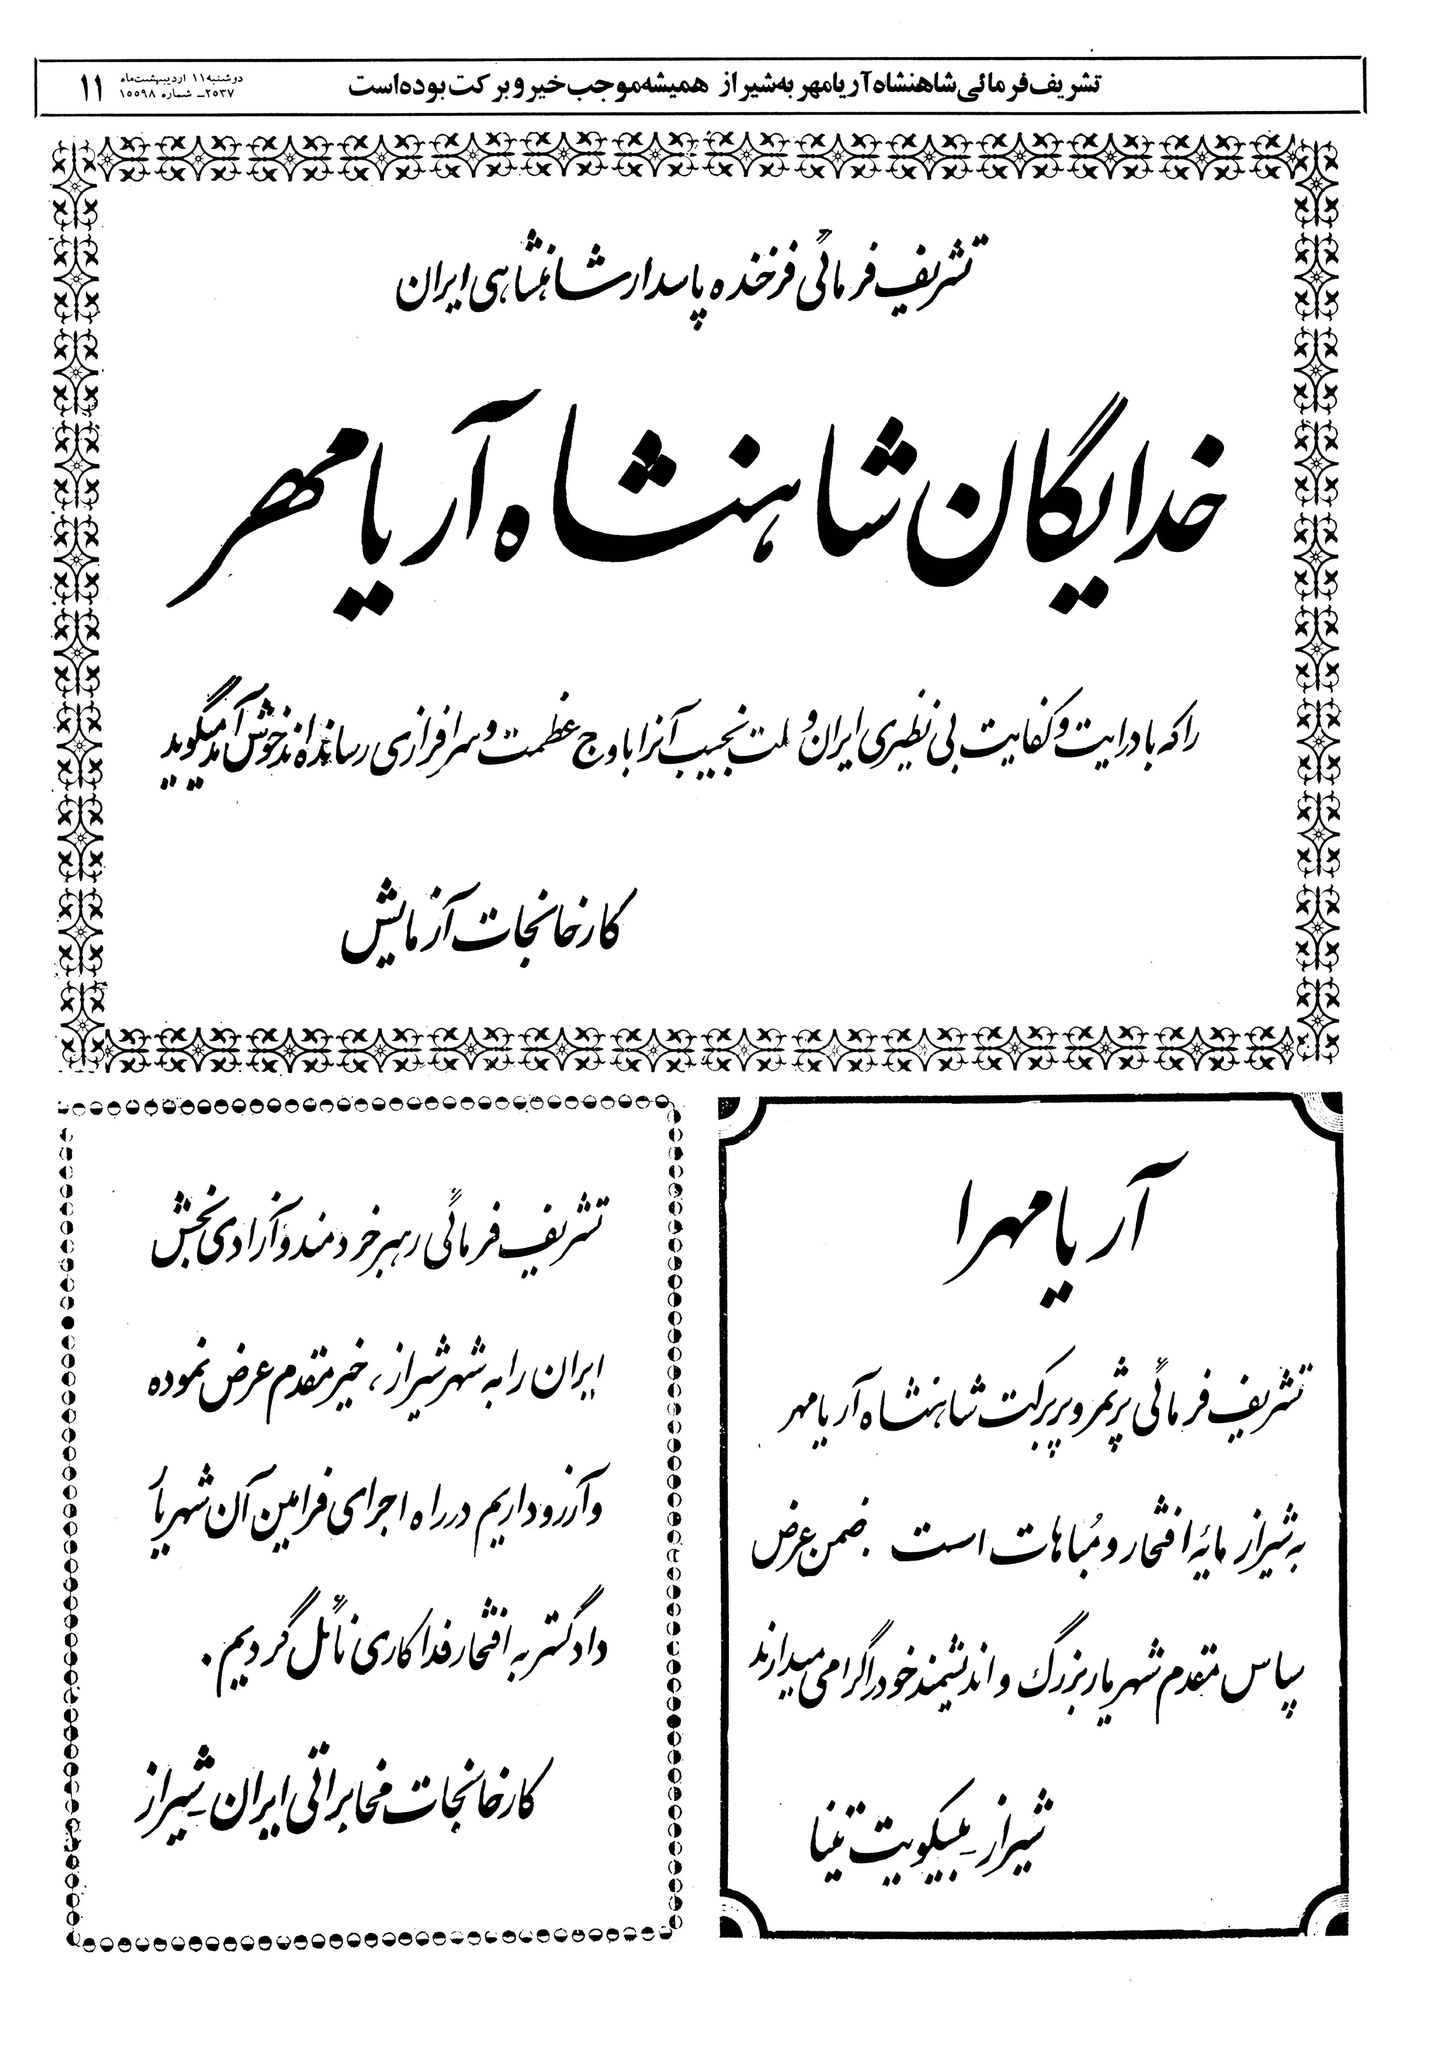 تشریف‌فرمائی شاهنشاه آریامهر به شیراز همیشه موجب خیر و برکت بوده است
دوشنبه ۱۱ اردیبهشت ماه
۲۵۳۷ـ شماره ۱۵۵۹۸
۱۱
تشریف فرمائی فرخنده پاسدار شاهنشاهی ایران
خدایگان شاهنشاه آریامهر
را که با درایت و کفایت بی نظیری ایران و ملت نجیب آنرا باوج عظمت و سرافرازی رسانده‌اند خوش آمد میگوید
کارخانجات آزمایش
آریامهرا
تشریف فرمائی پرثمر و پربرکت شاهنشاه آریامهر
به شیراز مایه افتخار و مُباهات است بضمن عرض
سپاس مقدم شهریار بزرگ و اندیشمند خود را گرامی میدارند
شیراز ـ بیسکویت تینا
تشریف فرمائی رهبر خردمند و آزادی بخش
ایران را به شهر شیراز، خیر مقدم عرض نموده
و آرزو داریم در راه اجرای فرامین آن شهریار
دادگستر به افتخار فداکاری نائل گردیم.
کارخانجات مخابراتی ایران ـ شیراز